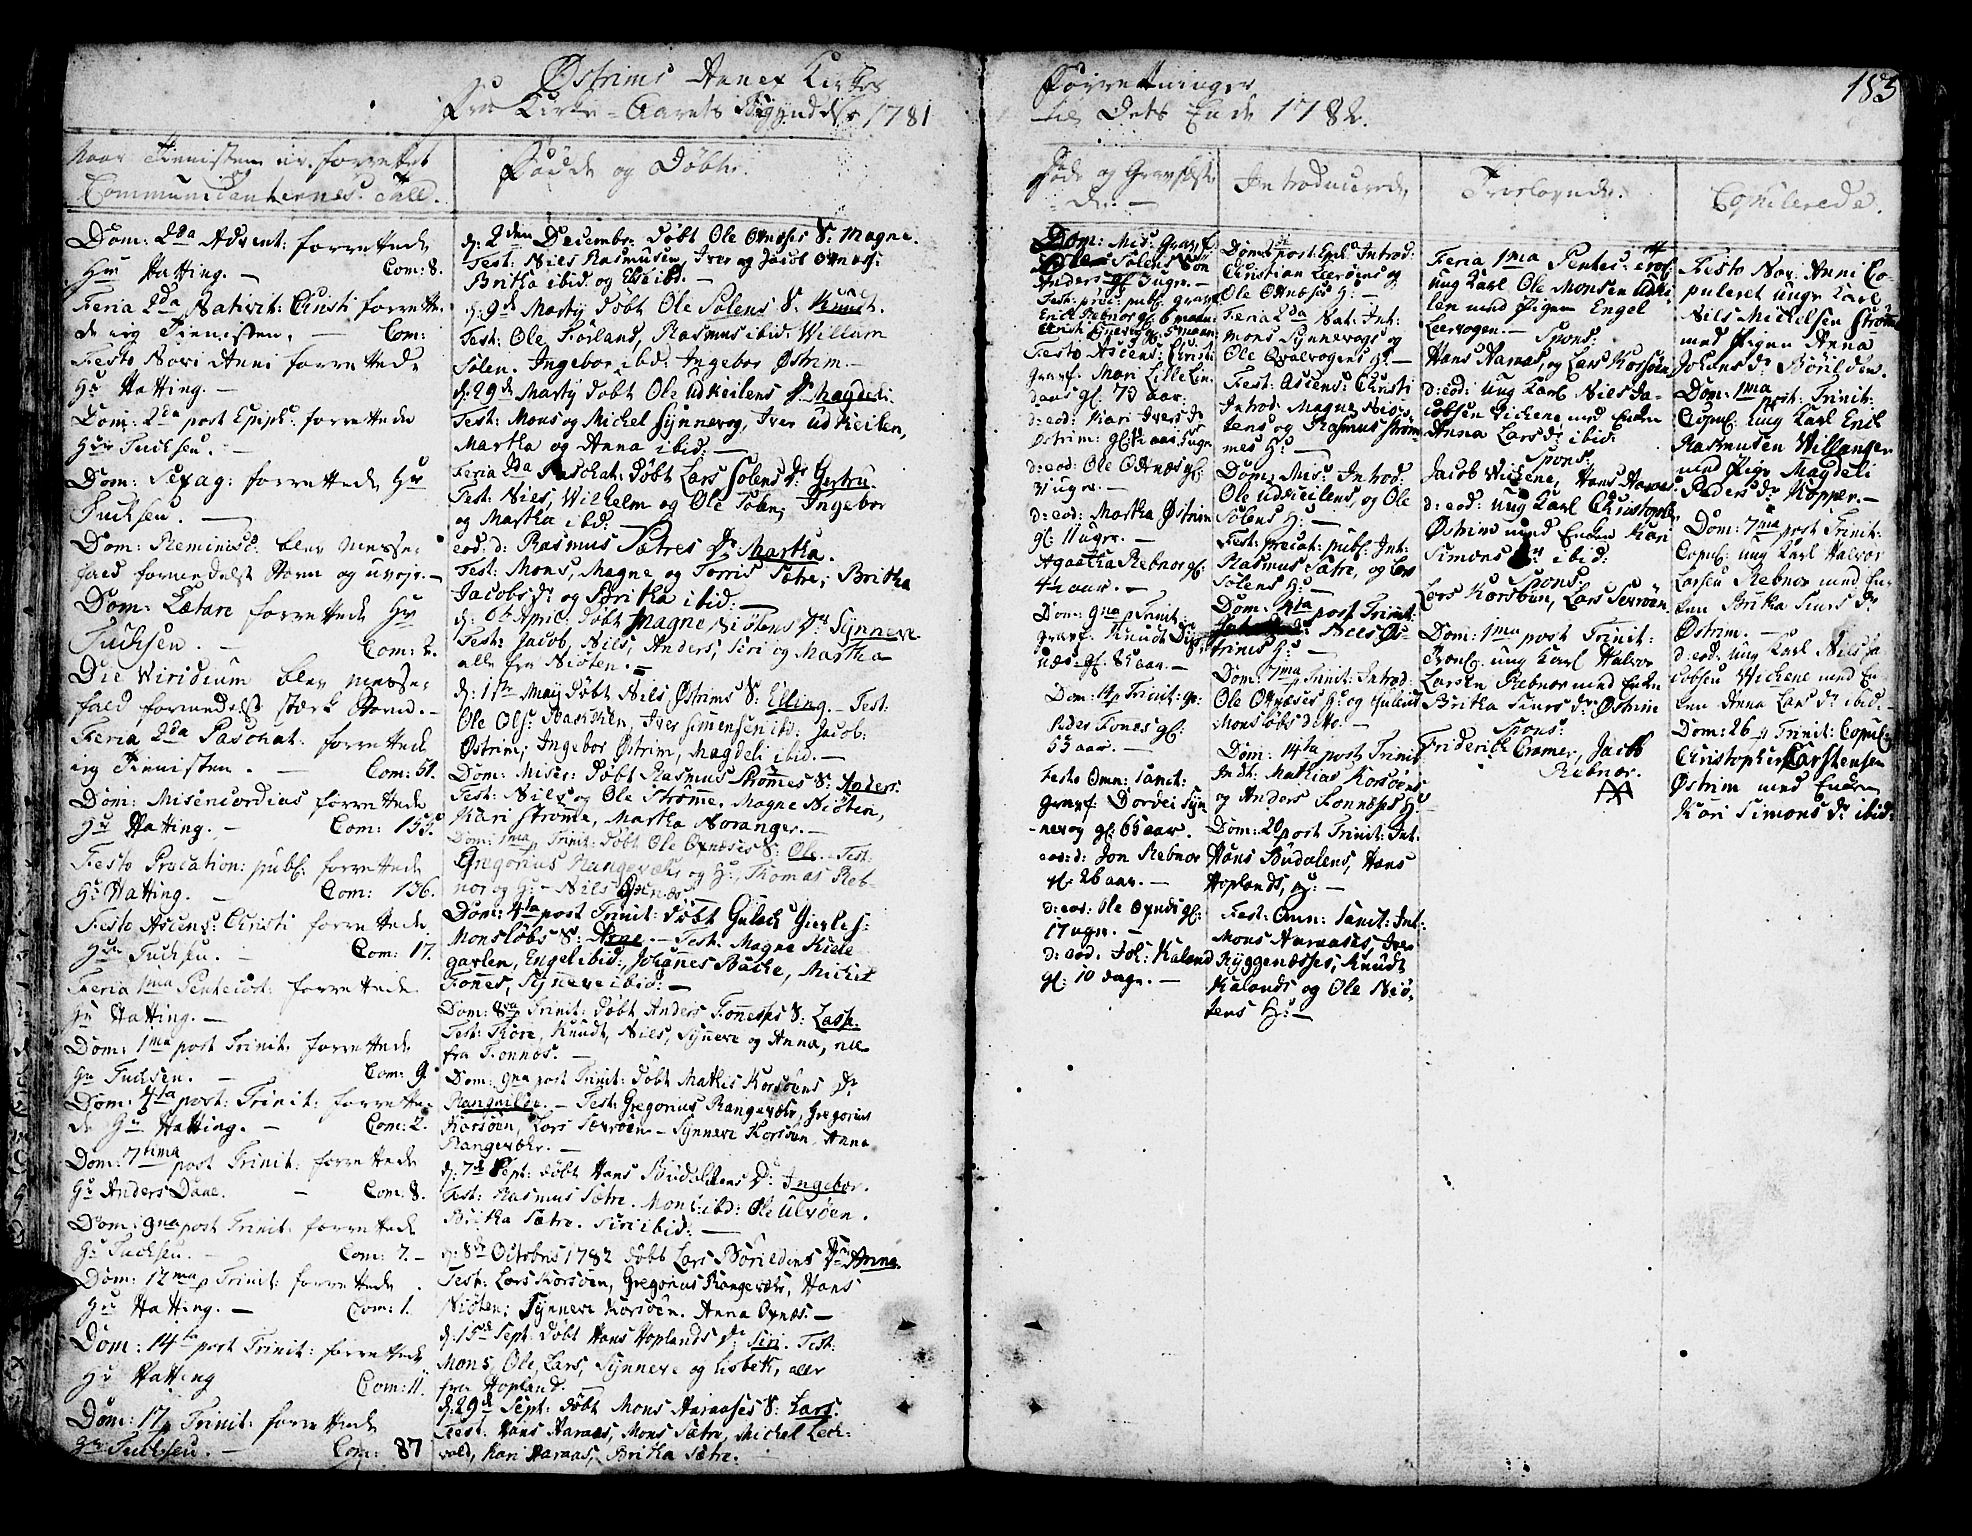 Østrims Annex Kirkes Forrettninger
Fra Kirke-Aarets Begyndelse 1781 til Dets Ende 1782.
183
Naar Tienisten er forrettet
Communicanternes Tall.
Dom: 2da Advent: forrettede
Hr Hatting. — Com: 8.
Feria 2da Nativit: Christi forrette-
de ieg Tienisten. Com:
Festo Novi Anni forrettede
Hr Hatting. —
Dom: 2da post Epiph: forrettede
Hr Fuchsen. —
Dom: Sexag: forrettede Hr
Fuchsen. —
Dom: Reminisc: blev Messe-
fald formedelst Storm og uveir. —
Dom: Lætare forrettede Hr
Fuchsen. — Com: 2.
Die Viridium blev Messe-
fald formedelst stærk Storm. —
Feria 2da Paschat: forrettede
ieg Tienisten. — Com: 51.
Dom: Misericordias forrettede
Hr Hatting. — Com: 155.
Festo Precation: publ: forrettede
Hr Hatting. — Com: 136.
Festo Ascens: Christi forrettede
Hr Fuchsen. — Com: 17.
Feria 1ma Pentecost: forrettede
Hr Hatting. —
Dom: 1ma post Trinit: forrettede
Hr Fuchsen. — Com: 9.
Dom: 4ta post: Trinit: forrette-
de Hr Hatting. — Com: 2.
Dom: 7tima post Trinit: forrettede
Hr Anders Dane. — Com: 8.
Dom: 9na post Trinit: forrettede
Hr Fuchsen. — Com: 7. —
Dom: 12ma p Trinit: forrettede
Hr Hatting. — Com: 1.
Dom: 14ta post Trinit: forrettede
Hr Hatting Com: 11.
Dom: 17 p Trinit: forrettede
Hr Fuchsen. — Com: 87
Fødde og Døbte.
d: 2den Decembr: døbt Ole Otnæses S: Magne.
Test: Nils Rasmusen, Iver og Jacob Otnæs:
Britha ibid: og Eli ibid. —
d: 9de Marty døbt Ole Solens S: Knudt.
Test: Ole Førland, Rasmus ibid: Willum
Solen. Ingebor ibid: Ingebor Østrim. —
d: 29de Marty døbt Ole Udkeilens Dr Magdeli
Test: Mons og Michel Synnevog, Iver Udkeilen,
Martha og Anna ibid: —
Feria 2da Paschat: døbt Lars Solens Dr Gertru.
Test: Niels, Wilhelm og Ole Solen, Ingebor
og Martha ibid. —
eod: d: Rasmus Sætres Dr Martha.
Test: Mons, Magne og Torris Sætre; Britha
Jacobs Dr og Britha ibid: —
d: 6t April: døbt Magne Niøtens Dr Synneve
Test: Jacob, Nils, Anders, Siri og Martha
alle fra Niøten. —
d: 1ste May døbt Nils Østrims S: Elling. — Test:
Ole Ols: Baschen, Iver Simensen ibd: Jacob:
Østrim; Ingebor Østrim, Magdeli ibid. —
Dom: Miser: døbt Rasmus Strømes S: Anders.
Test: Nils og Ole Strømme, Magne Niøten,
Kari Strøme, Martha Noranger. —
Dom: 1ma p Trinit: døbt Ole Oxnæses S: Ole. — Test:
Gregorius Rangevær og H:, Thomas Reb-
nor og H: — Nils Oxnæs. —
Dom: 4ta post Trinit: døbt Gulach Gierløs:
Monsløbs S: Arne. — Test: Magne Kiele-
garlen, Engel ibid:, Johannes Backe, Michel
Fones, Synneve ibid: —
Dom: 8va p Trinit: døbt Anders Fonesses S: Lasse.
Test: Tore, Knudt, Nils, Synneve og Anna, alle
fra Fonnes. —
Dom: 9na post Trinit: døbt Mathis Korsøens Dr
Ranquilde. — Test: Gregorius Rangevær, Gregorius
Korsøen, Lars Særvøen — Synneve Korsøen, Anna
Rangevær. —
d: 7de Sept: døbt Hans Budalens Dr Ingebor.
Test: Rasmus Sætre, Mons ibd: Ole Ulvøen.
Britha Sætre, Siri ibid: —
d: 8de Octobris 1782 døbt Lars Børildens Dr Anna.
Test: Lars Korsøen, Gregorius Rangevær, Hans
Niøten; Synneve Korsøen. Anna Oxnæs. —
d: 15de Sept: døbt Hans Hoplands Dr Siri. Test:
Mons, Ole, Lars, Synneve og Lisbeth, alle
fra Hopland. —
d: 29de Sept: døbt Mons Haraases S: Lars.
Test: Hans Haraas, Mons Sætre, Michel Lech-
vold, Kari Haraas, Britha Sætre. —
Døde og Gravfæste-
de. —
Dom: Mis: Gravf:
Ole Solens Søn
Anders gl: Iugr. —
Test: prec: publ: gravf:
Erich Rebnor gl: 6 maan:
Festo Ascens: Christ:
Gravf. Mari Lille Lin-
daas gl: 73 aar. —
d: eod: Kari Ivers Dr
Østrim: gl: aar ugr.
d: eod: Ole Otnæs gl:
31 ugr. —
d: eod: Martha Østrim
gl: 11 ugr. —
Agaatha Rebnor gl:
4½ aar. —
Dom: 9na p Trinit:
gravf. Knudt
næs. gl. 85 aar. —
Dom: 14 p Trinit: gr:
Peder Fones gl:
53 aar. —
Festo Omn: Sanct:
Gravf: Dordei Syn-
nevog gl: 65 aar. —
eod: d: Jon Rebnor
gl: 26 aar. —
d: eod: Ole Oxnæs gl:
17 ugr. —
d: eod: Joh: Kaland
gl: 10 dage. —
Introducerede
Dom: 2d post Epiph: Introd:
Christian Leerøens og
Ole Otnæses H: —
Feria 2da Nat: Int:
Mons Synnevogs og
Ole Qvalvogens H: —
Fest: Ascens: Christi
Introd: Magne Niø-
tens og Rasmus Strøm-
mes H: —
Dom: Mis: Introd:
Ole Udkeilens, og Ole
Solens H: —
Fest: Precat: publ: Int:
Rasmus Sætre, og Lars
Solens H: —
Dom: 4ta post Trinit:
Nils Øs-
trims H: —
Dom: 7ma Trinit: Introd:
Ole Oxnæses H: og Gulacs
Monsløbs ditto. —
Dom: 14ta post Trinit:
Indt: Mathias Korsøens
og Anders Fonnesses H:
Dom: 20 post Trinit: Int:
Hans Budalens, Hans
Hoplands, H: —
Fest: Omn: Sanct: Int:
Mons Haraases, Iver
Ryggenæsses, Knudt
Kalands og Ole Niø-
tens H: —
Troelovede
Feria 1ma Pentec: trol:
ung Karl Ole Monsen Udkei-
len med Pigen Engel
Leervogen. —
Spons:
Hans Haraas, og Lars Korsøen.
d: eod: ung Karl Nils Ja-
cobsen Vichene med Enken
Anna Lars Dr ibid:
Spons:
Jacob Vichene, Hans Haraas.
d: eod: ung Karl Christopher
Østrim med Enken Kari
Simons Dr ibid:
Spons:
Lars Korsøen, Lars Særvøen.
Dom: 1ma post Trinit:
Trol: ung Karl Halvor
Larsen Rebnor med Enken
Britha Siurs Dr Østrim
Spons:
Friderich Cramer, Jacob
Rebnor.
Copulerede.
Festo Nov: Anni Co-
puleret unge Karl
Nils Michelsen Strømme
med Pigen Anna
Johans Dr Børilden.
Dom: 1ma post: Trinit:
Copul: ung Karl Erich
Rasmusen Willanger
med Pige Magdeli
Peders Dr Kopper. —
Dom: 7ma post Trinit:
Copul: ung Karl Halvor
Larsen Rebnor med En-
ken Britha Siurs Dr
Østrim. —
d: eod: ung Karl Nils Ja-
cobsen Vichene med En-
ken Anna Lars Dr ibid. —
Dom: 26 p Trinit: Copul:
Christopher Carstensen
Østrim med Enken
Kari Simons Dr ibid.